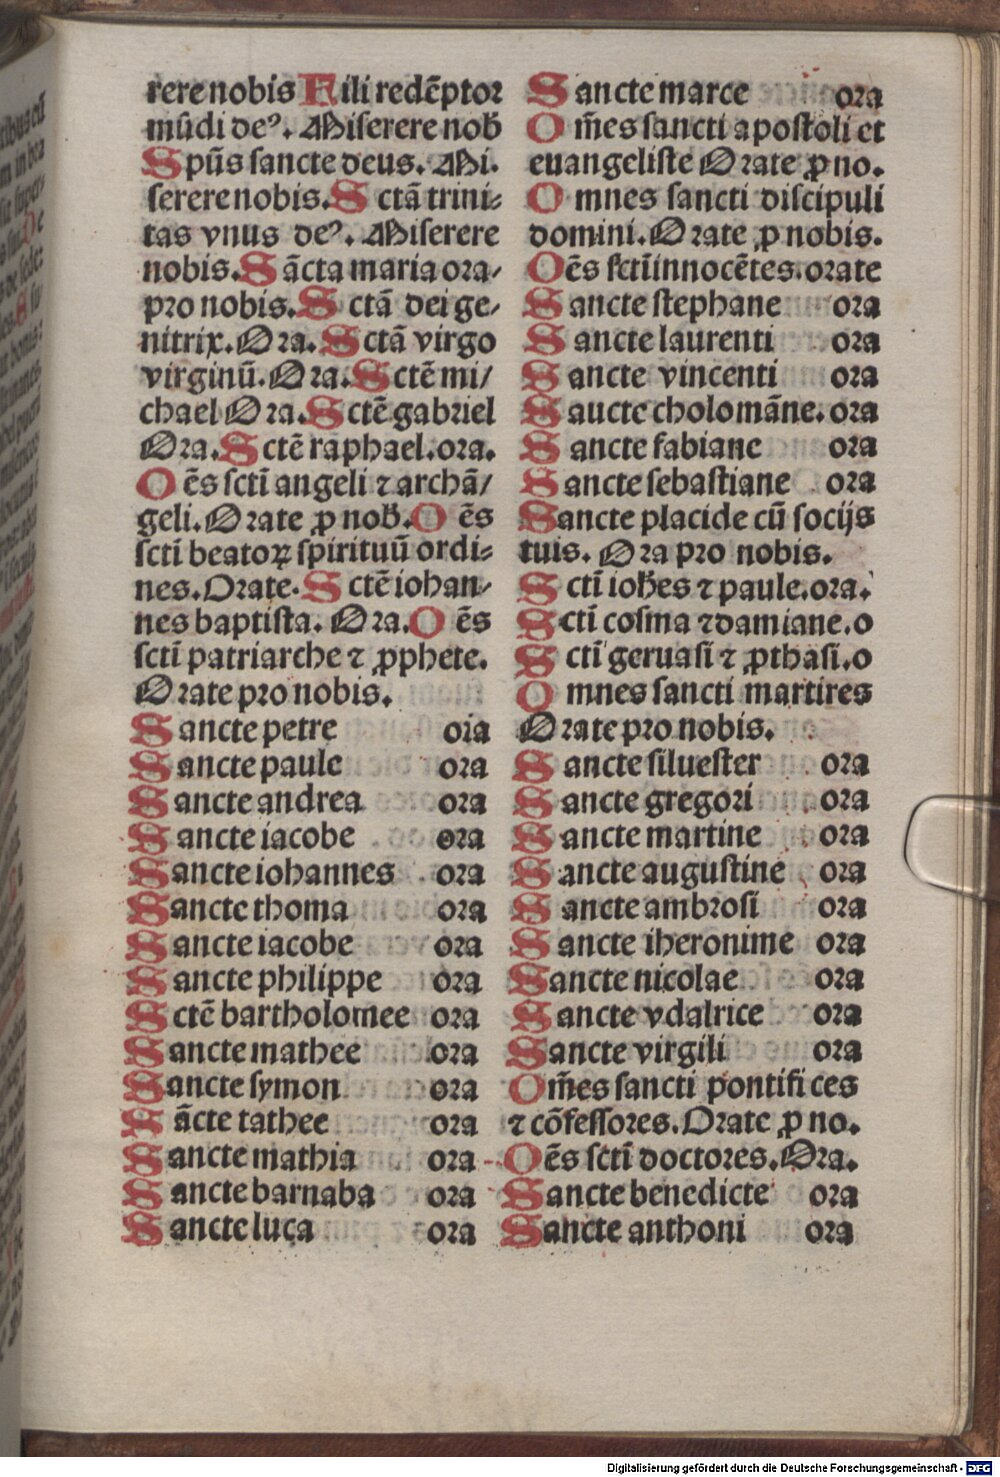 rere nobis Fili redēptor
mūdi deꝰ. Miserere nob̄
Spūs sancte deus. Mi.
serere nobis. Sctā trini⸗
tas vnus deꝰ. Miserere
nobis. Sācta maria ora/
pro nobis. Sctā dei ge/
nitrix. Ora. Sctā virgo
virginū. Ora. Sctē mi/
chael Ora. Sctē gabriel
Ora. Sctē raphael. ora.
Oēs scti angeli ⁊ archā/
geli. Orate ꝓ nob̄. Oēs
scti beatoꝝ spirituū ordi⸗
nes. Orate. Sctē iohan/
nes baptista. Ora. Oēs
scti patriarche ⁊ ꝓphete.
Orate pro nobis.
Sancte petre oia
Sancte paule ora
Sancte andrea ora
Sancte iacobe ora
Sancte iohannes ora
Sancte thoma ora
Sancte iacobe ora
Sancte philippe ora
Sctē bartholomee ora
Sancte mathee ora
Sancte symon ora
Sācte tathee ora
Sancte mathia ora
Sancte barnaba ora
Sancte luca ora
Sancte marce ora
Om̄es sancti apostoli et
euangeliste Orate ꝓ no.
Omnes sancti discipuli
domini. Orate ꝓ nobis.
Oēs sctī innocētes. orate
Sancte stephane ora
Sancte laurenti ora
Sancte vincenti ora
Saucte cholomāne. ora
Sancte fabiane ora
Sancte sebastiane ora
Sancte placide cū socijs
tuis. Ora pro nobis.
Sctī ioh̄es ⁊ paule. ora.
Sctī cosma ⁊ damiane. o
Sctī geruasi ⁊ ꝓthasi. o
Omnes sancti martires
Orate pro nobis.
Sancte siluester ora
Sancte gregori ora
Sancte martine ora
Sancte augustine ora
Sancte ambrosi ora
Sancte iheronime ora
Sancte nicolae ora
Sancte vdalrice ora
Sancte virgili ora
Om̄es sancti pontifices
⁊ cōfessores. Orate ꝓ no.
Oēs sctī doctores. Ora.
Sancte benedicte ora
Sancte anthoni ora
Digitalisierung gefördert durch die Deutsche Forschungsgemeinschaft - DFG